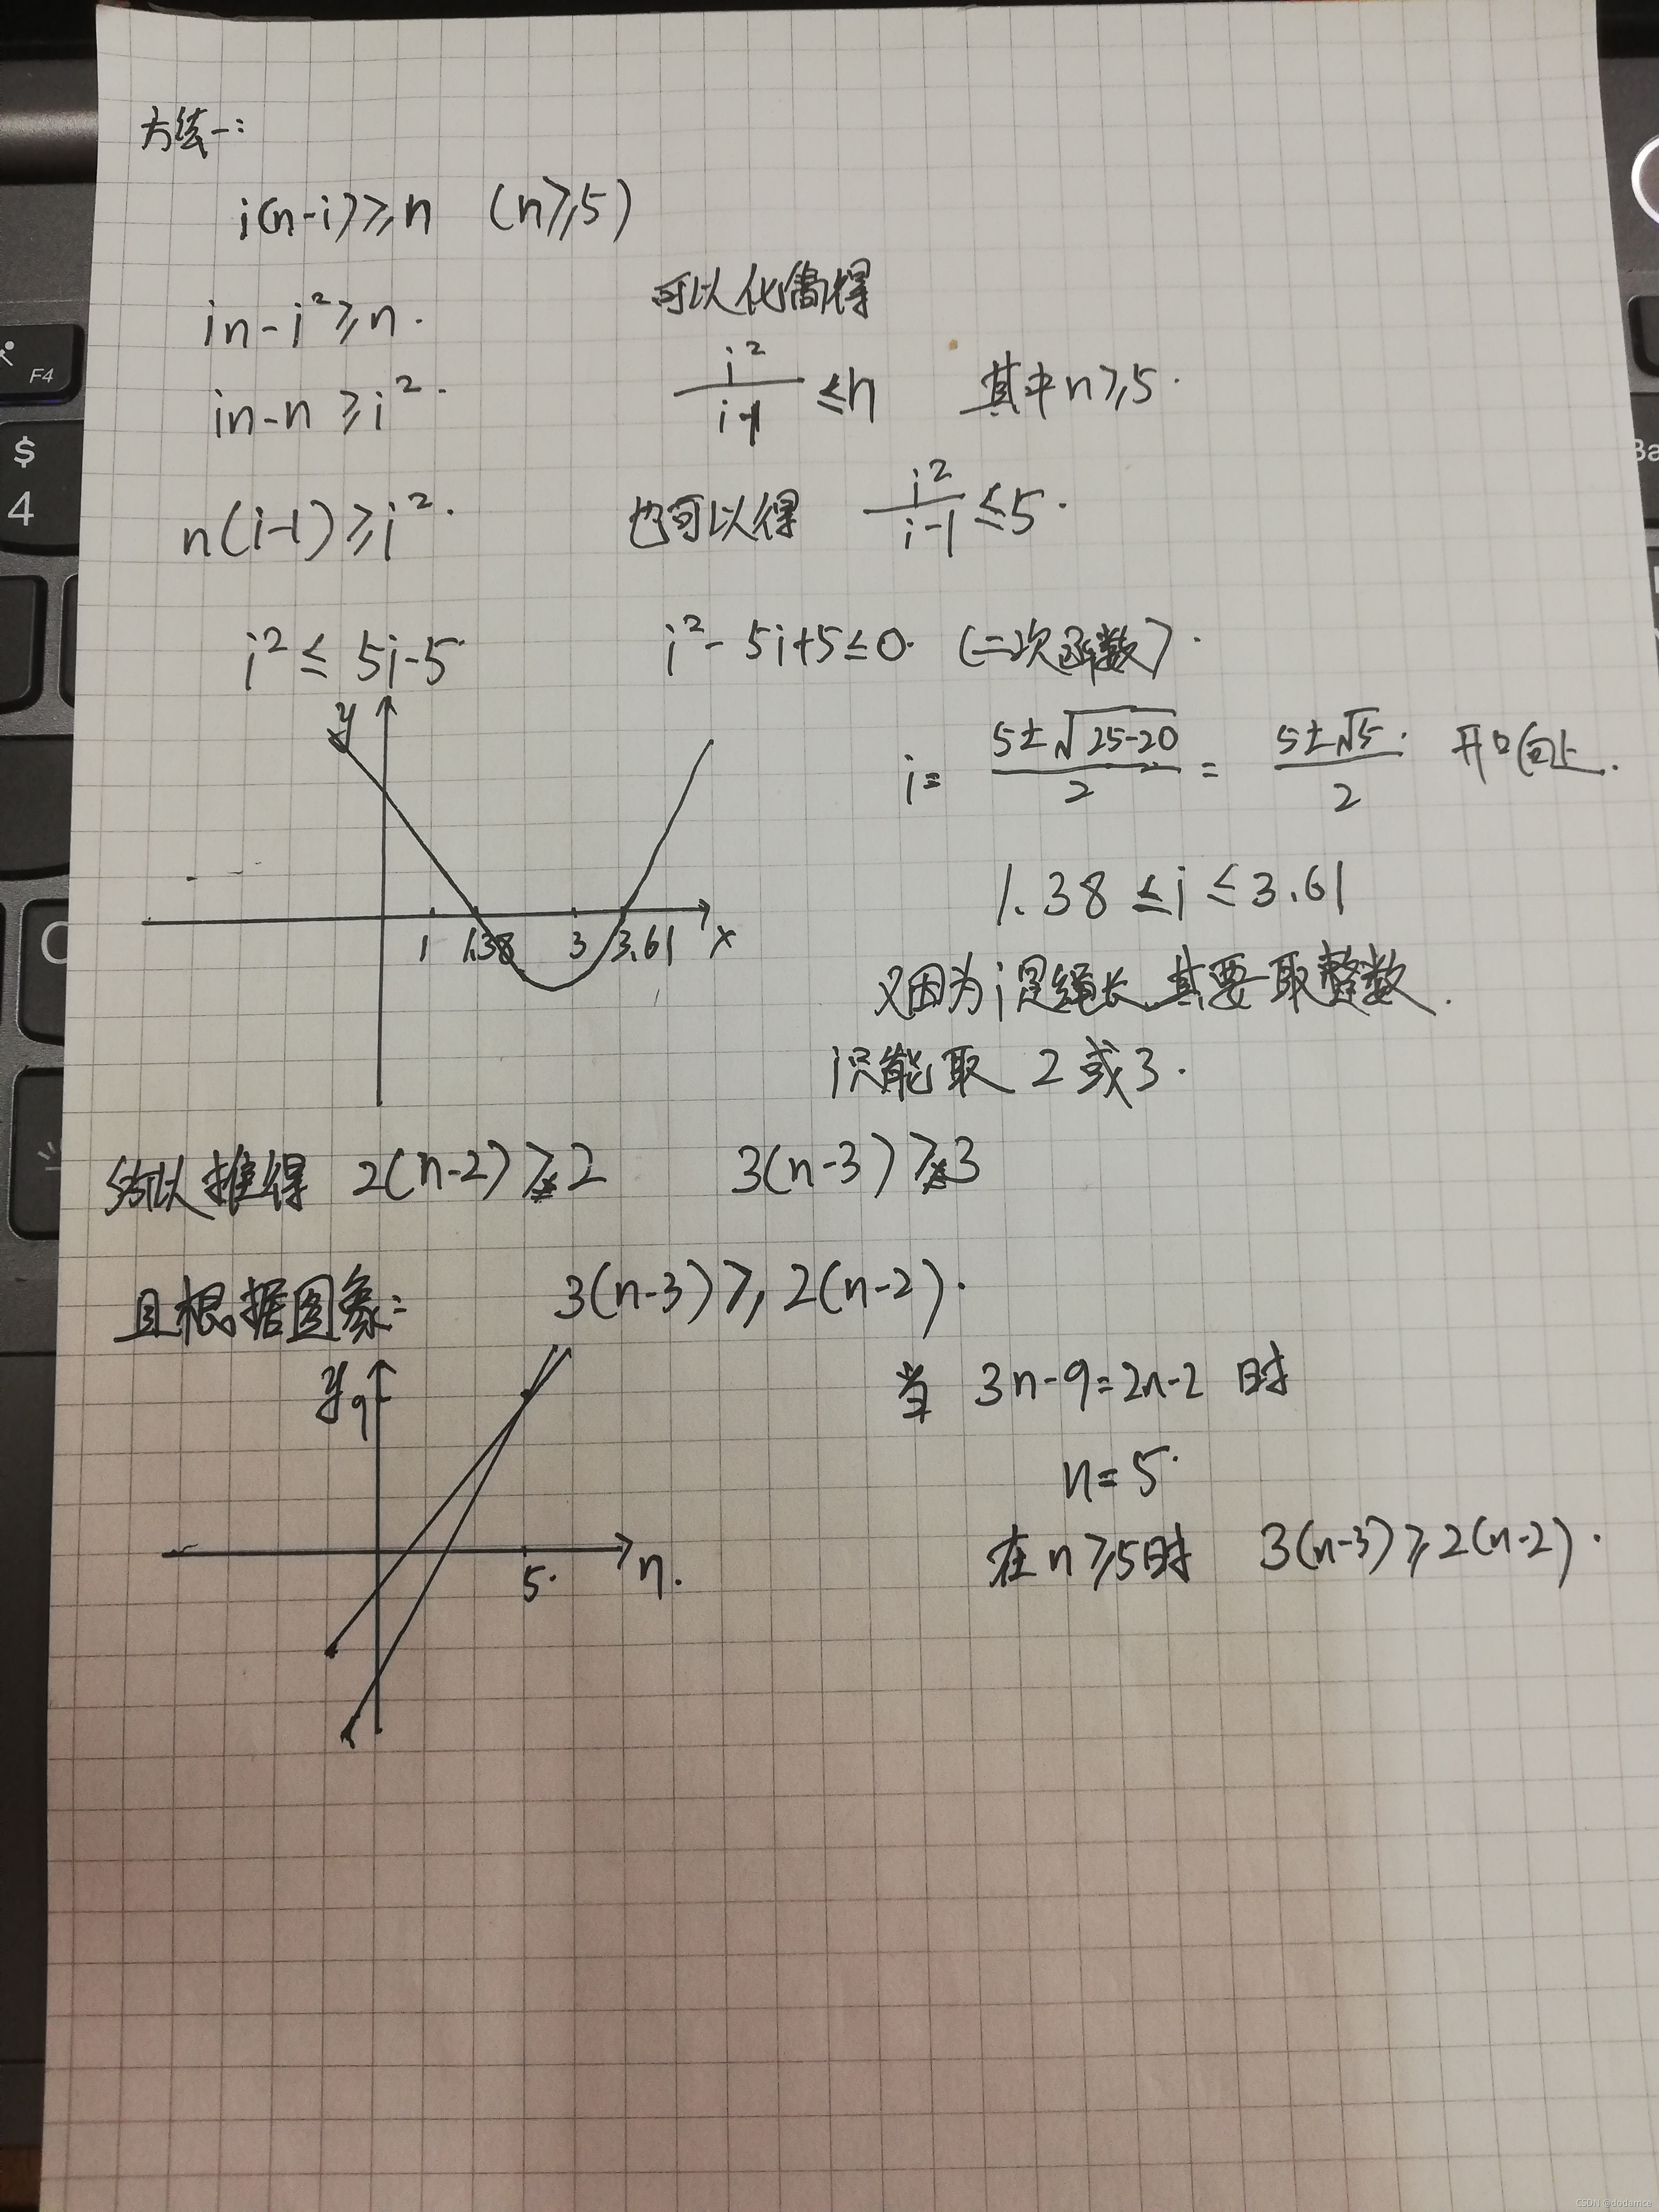 方法一:
i(n-i)≥n (n≥5)
in-i²≥n.
in-n≥i².
n(i-1)≥i².
可以化简得
i²/(i-1)≤n 其中n≥5.
也可以得 i²/(i-1)≤5.
i²≤5i-5
i²-5i+5≤0. (二次函数).
i= (5±√(25-20))/2 = (5±√5)/2. 开口向上.
y
1 1.38 3 3.61 x
1.38≤i≤3.61
又因为i是绳长,其要取整数.
只能取 2或3.
所以推得 2(n-2)≥2 3(n-3)≥3
且根据图象: 3(n-3)≥2(n-2).
y
9
5. n.
当 3n-9=2n-2 时
n=5.
在n≥5时 3(n-3)≥2(n-2).
F4
$
4
CSDN @dodamce